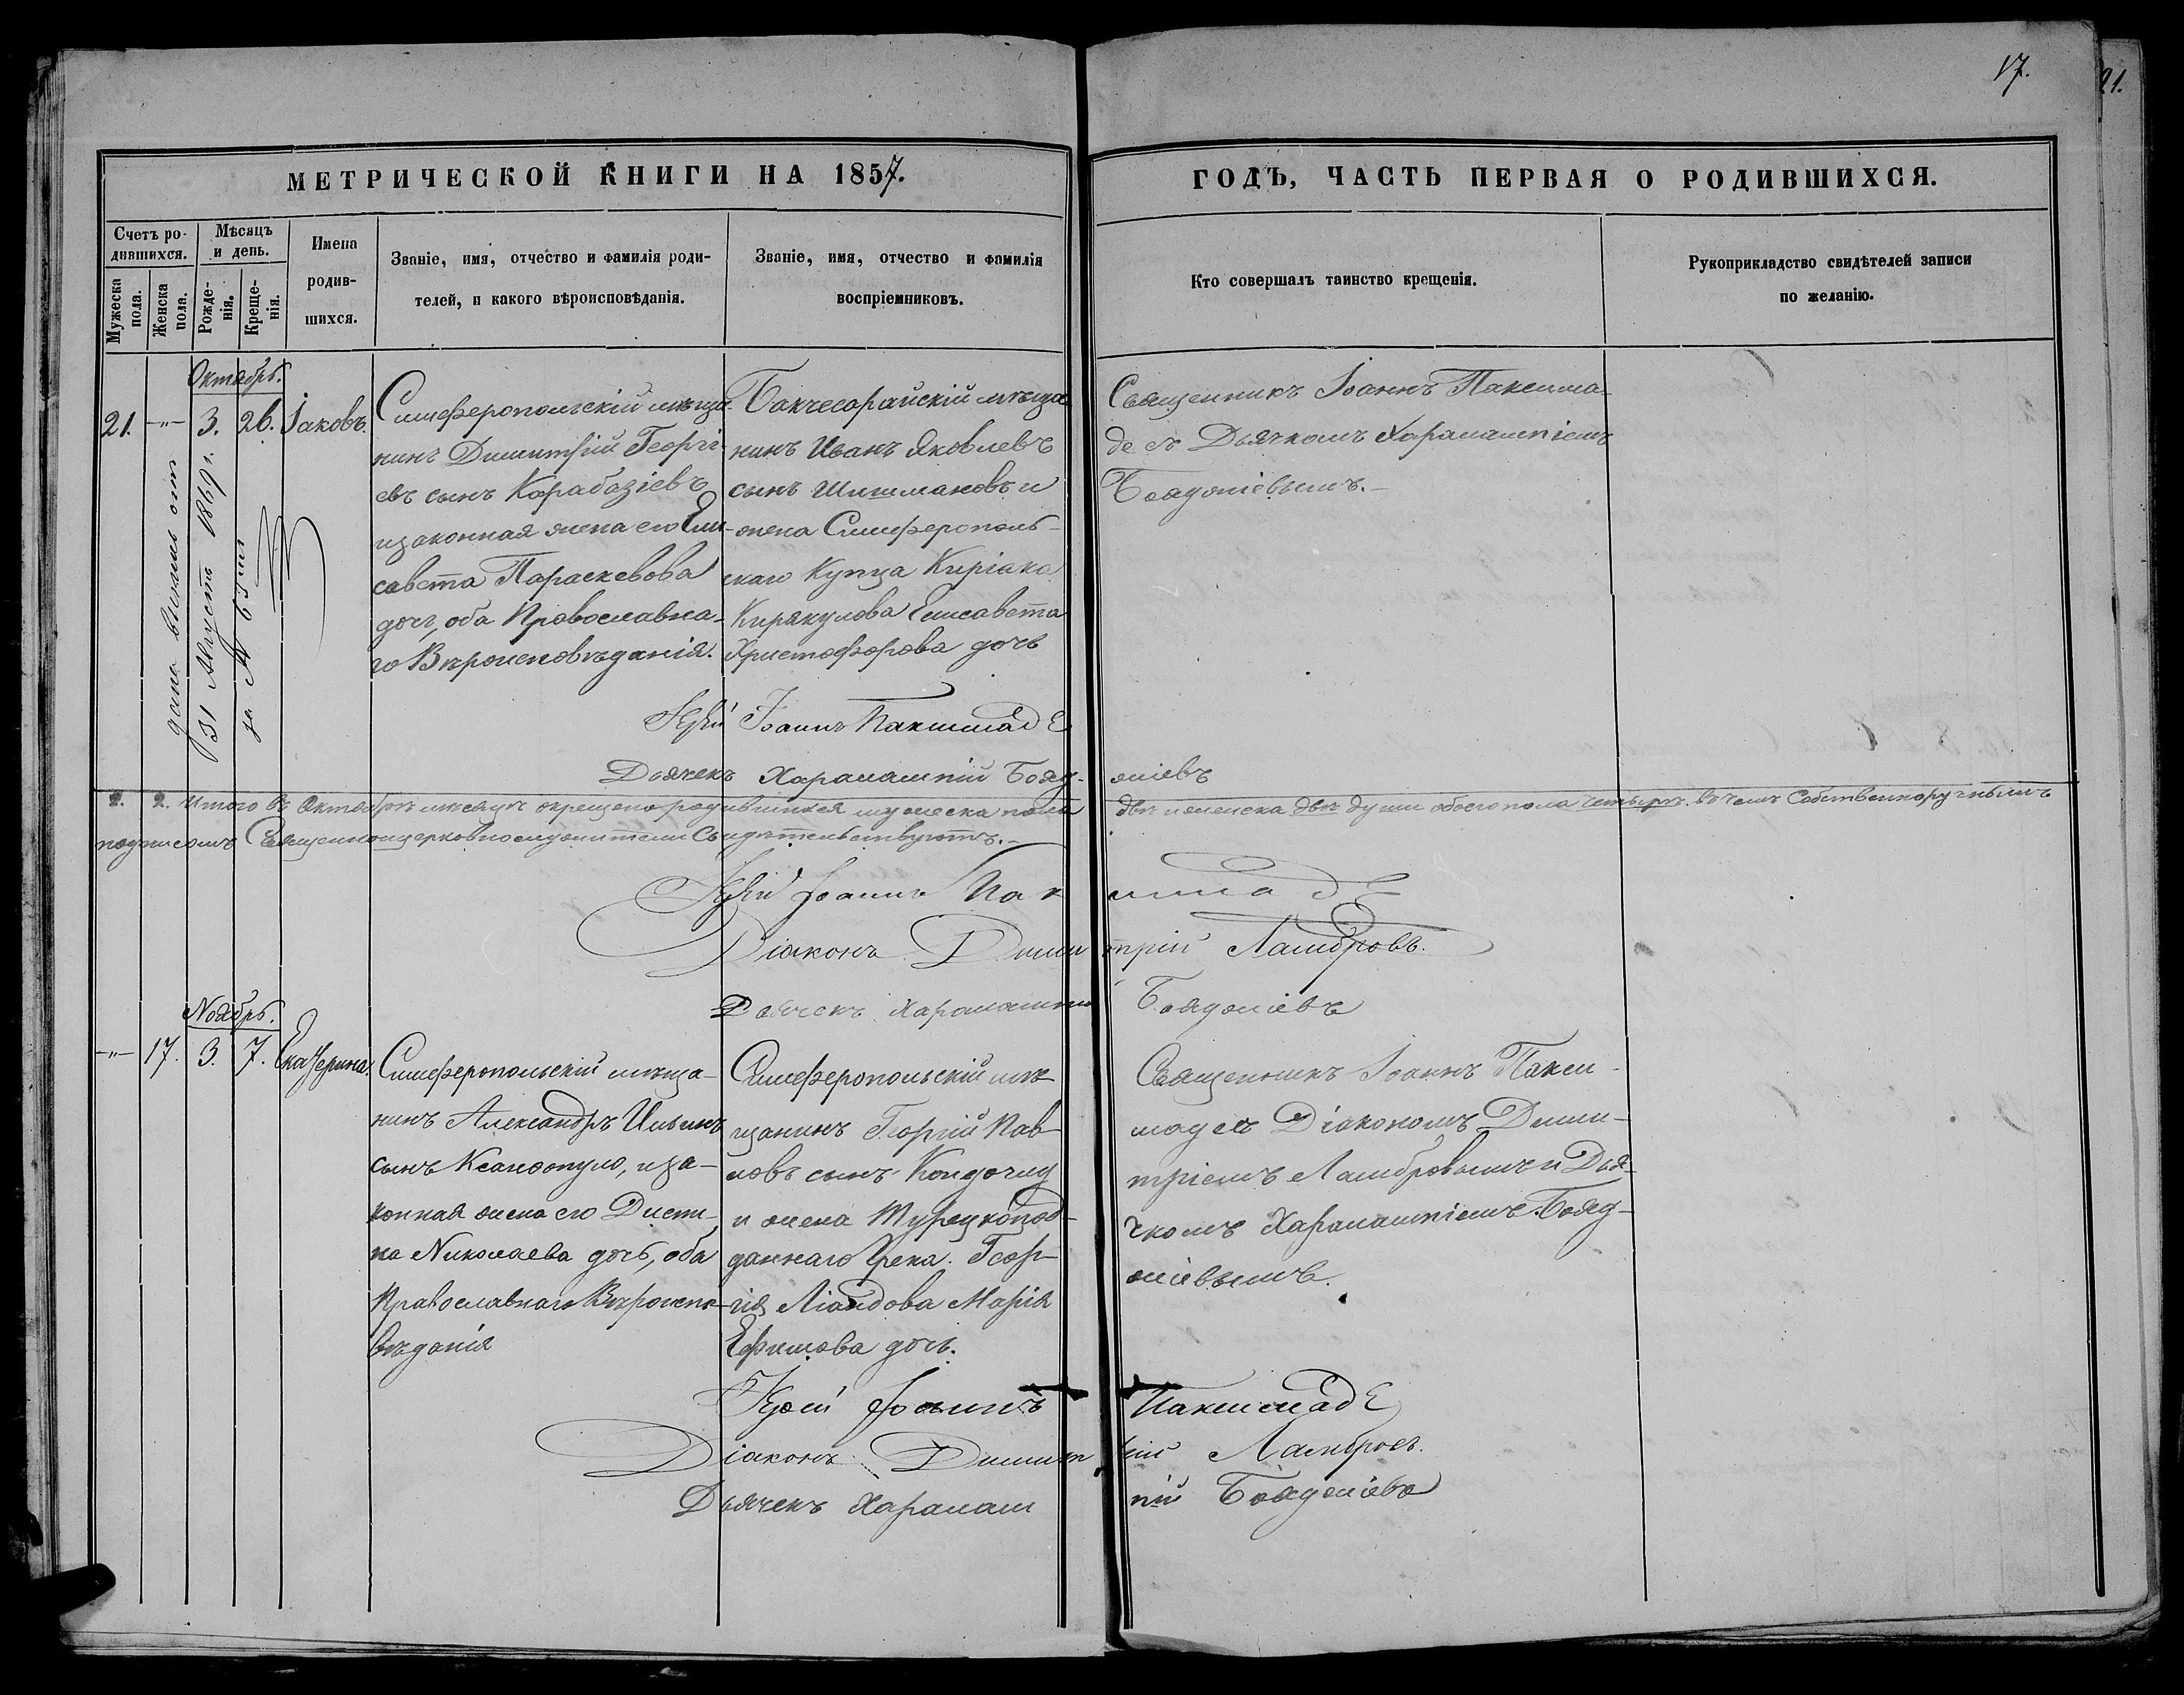 17.
21.
МЕТРИЧЕСКОЙ КНИГИ НА 1857.
ГОДЪ, ЧАСТЬ ПЕРВАЯ О РОДИВШИХСЯ.
Счетъ ро-
дившихся.
Мужеска
пола.
Женска
пола.
Мѣсяцъ
и день.
Рожде-
нія.
Креще-
нія.
Имена
родив-
шихся.
Званіе, имя, отчество и фамилія роди-
телей, и какого вѣроисповѣданія.
Званіе, имя, отчество и фамилія
воспріемниковъ.
Кто совершалъ таинство крещенія.
Рукоприкладство свидѣтелей записи
по желанію.
Октябрь.
21. -"- 3. 26. Іаковъ.
Симферопольскій мѣща-
нинъ Димитрій Георгі-
евъ сынъ Карабазіевъ
изаконная жена его Ели-
савета Параскевова
дочь, оба Православна-
го Вѣроисповѣданія.
Бакчесарайскій мѣща
нинъ Иванъ Яковлевъ
сынъ Шишмановъ и
жена Симферополь-
скаго Купца Киріака
Кирякулова Елисавета
Христофорова дочь
Священникъ Іоаннъ Паксима-
де съ Дьячкомъ Харалампіемъ
Бояджіевымъ.-
31 Августа 1869 г.
за №
Іерей Іоаннъ Паксимаде
Дьячекъ Харалампій Бояд-жіевъ
2. 2. Итого въ Октябрѣ мѣсяцѣ окрещено родившихся мужеска пола двѣ иженска двѣ души обоего пола четыре. въ чемъ Собственноручнымъ
подписомъ Священноцерковнослужители Свидѣтельствуютъ.-
Іерей Іоаннъ Паксимаде
Діаконъ Димитрій Ламбровъ.
Дьячекъ Харалампій Бояджіевъ
Ноябрь.
-"- 17. 3. 7. Екатерина.
Симферопольскій мѣща-
нинъ Александръ Ильинъ
сынъ Ксанфопуло, иза-
конная жена его Диспи-
на Николаева дочь, оба
Православнаго Вѣроиспо-
вѣданія
Симферопольскій мѣ-
щанинъ Георгій Пав-
ловъ сынъ
и жена Турецкопод-
даннаго Грека. Геор-
гія Ліандова Марія
Ефимова дочь.
Священникъ Іоаннъ Пакси-
маде съ Діакономъ Дими-
тріемъ Ламбровымъ и Дья-
чкомъ Харалампіемъ Бояд-
жіевымъ.
Іерей Іоаннъ Паксимаде
Діаконъ Димитрій Ламбровъ.
Дьячекъ Харалампій Бояджіевъ